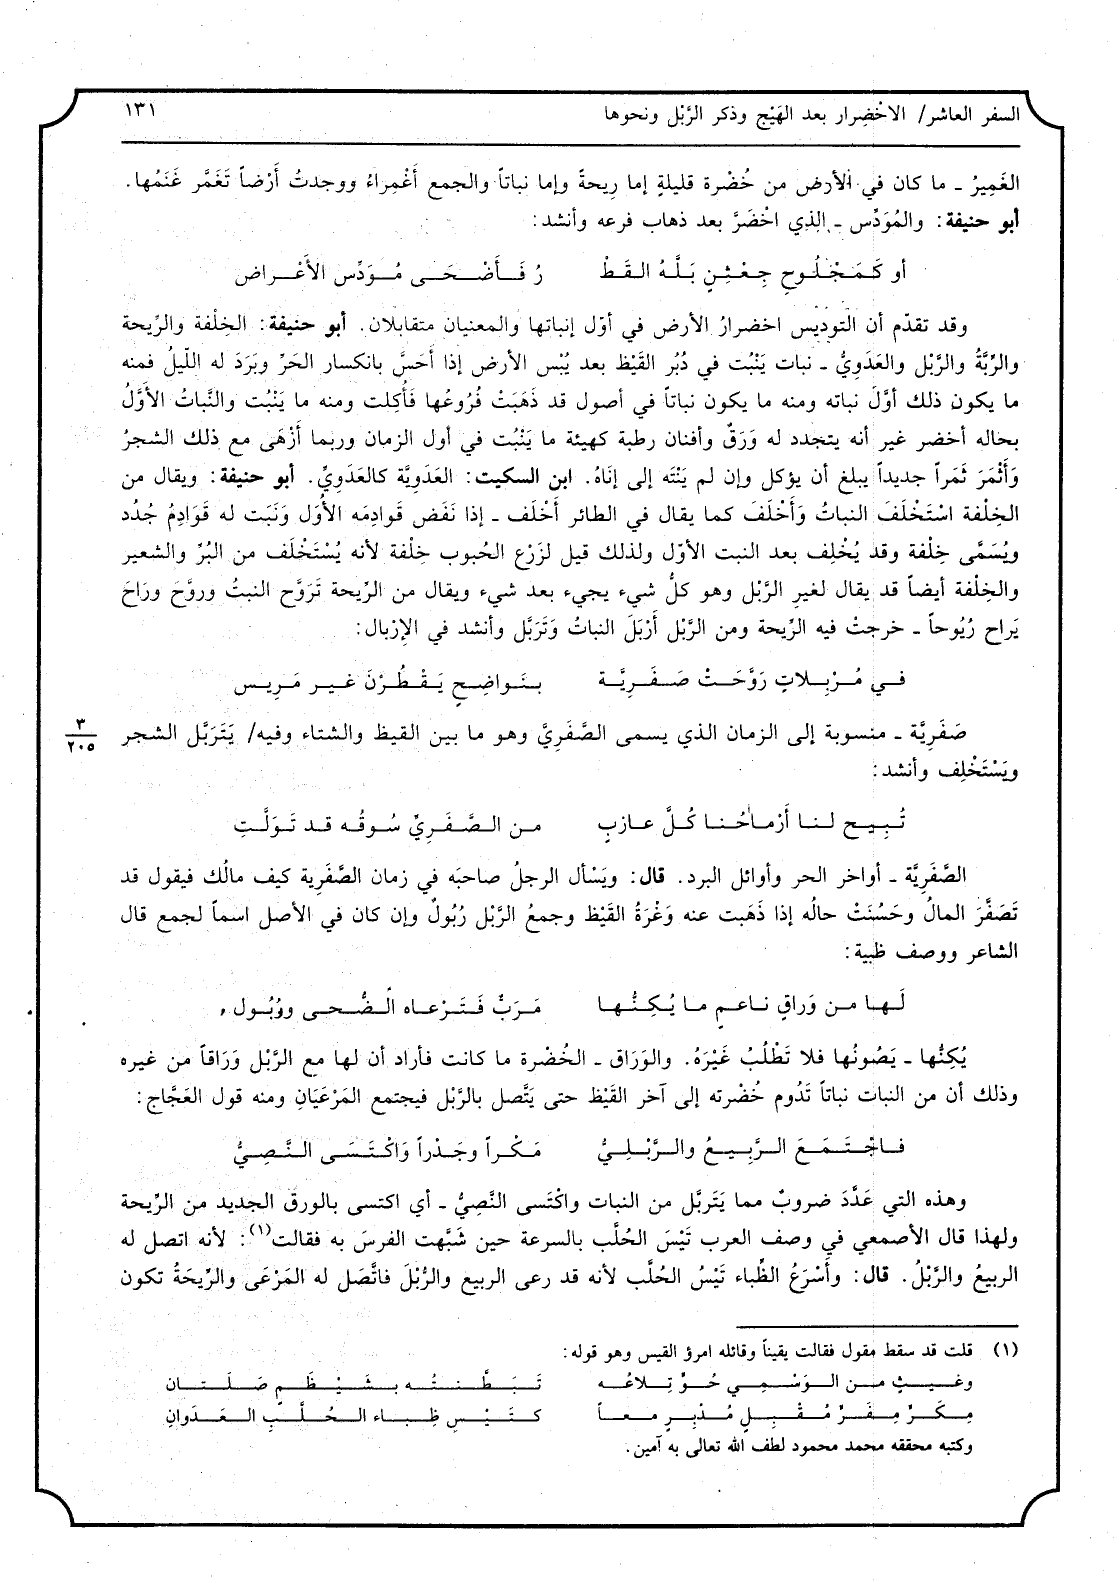 السفر العاشر/ الاخْضِرار بعد الهَيْج وذكر الرَّبْل ونحوها ١٣١
الغَمِيرُ ـ ما كان في الأرض من خُضْرة قليلةٍ إما رِيحةً وإما نباتاً والجمع أَغْمِراءُ ووجدتُ أَرْضاً تَغَمَّر غَنَمُها.
أبو حنيفة: والمُوَدِّس ـ الذي اخْضَرَّ بعد ذهاب فرعه وأنشد:
أو كَمَجْلُوحِ جِعْثِنٍ بَلَّهُ القَطْ رُ فَأَضْحَى مُوَدِّس الأَعْراض
وقد تقدّم أن التوديس اخضرارُ الأرض في أوّل إنباتها والمعنيان متقابلان. أبو حنيفة: الخِلْفة والرِّيحة
والرِّبَّةُ والرَّبْل والعَدَوِيُّ ـ نبات يَنْبُت في دُبُر القَيْظ بعد يُبْس الأرض إذا أَحَسَّ بانكسار الحَرِّ وبَرَدَ له اللّيلُ فمنه
ما يكون ذلك أوَّلَ نباته ومنه ما يكون نباتاً في أصول قد ذَهَبَتْ فُرُوعُها فأُكِلت ومنه ما يَنْبُت والنَّباتُ الأوَّلُ
بحاله أخضر غير أنه يتجدد له وَرَقٌ وأفنان رطبة كهيئة ما يَنْبُت في أول الزمان وربما أَزْهَى مع ذلك الشجرُ
وَأَثْمَرَ ثَمَراً جديداً يبلغ أن يؤكل وإن لم يَنْتَه إلى إِنَاهُ. ابن السكيت: العَدَوِيَّة كالعَدَوِيِّ. أبو حنيفة: ويقال من
الخِلْفة اسْتَخْلَفَ النباتُ وَأَخْلَفَ كما يقال في الطائر أَخْلَف ـ إذا نَفَض قوادِمَه الأُوَل ونَبَت له قَوَادِمُ جُدُد
ويُسَمَّى خِلْفة وقد يُخْلِف بعد النبت الأوّل ولذلك قيل لزَرْع الحُبوب خِلْفة لأنه يُسْتَخْلَف من البُرِّ والشعير
والخِلْفة أيضاً قد يقال لغيرِ الرَّبْل وهو كلُّ شيء يجيء بعد شيء ويقال من الرِّيحة تَرَوَّح النبتُ وروَّحَ ورَاحَ
يَراح رُيُوحاً ـ خرجتْ فيه الرِّيحة ومن الرَّبْل أَرْبَلَ النباتُ وَتَرَبَّل وأنشد في الإرْبال:
في مُرْبِلاتٍ رَوَّحَتْ صَفَرِيَّة بنَواضِحٍ يَقْطُرْنَ غير مَرِيس
صَفَرِيَّة ـ منسوبة إلى الزمان الذي يسمى الصَّفَرِيَّ وهو ما بين القيظ والشتاء وفيه/ يَتَرَبَّل الشجر
٣
٢٠٥
ويَسْتَخْلِف وأنشد:
تُبِيح لنا أَرْماحُنا كُلَّ عازبٍ من الصَّفَرِيِّ سُوقُه قد تَوَلَّتِ
الصَّفَرِيَّة ـ أواخر الحر وأوائل البرد. قال: ويَسْأل الرجلُ صاحبَه في زمان الصَّفَرِية كيف مالُك فيقول قد
تَصَفَّرَ المالُ وحَسُنَتْ حالُه إذا ذَهَبت عنه وَغْرَةُ القَيْظ وجمعُ الرَّبْل رُبُولٌ وإن كان في الأصل اسماً لجمع قال
الشاعر ووصف ظبية:
لَها من وَراقٍ ناعمٍ ما يُكِنُّها مَرَبٌّ فَتَرْعاه الضُّحى ورُبُول
يُكِنُّها ـ يَصُونُها فلا تَطْلُبُ غَيْرَهُ. والوَرَاق ـ الخُضْرة ما كانت فأراد أن لها مع الرَّبْل وَرَاقاً من غيره
وذلك أن من النبات نباتاً تَدُوم خُضْرته إلى آخر القَيْظ حتى يَتَّصل بالرَّبْل فيجتمع المَرْعَيَانِ ومنه قول العَجَّاج:
فاجْتَمَعَ الرَّبِيعُ والرَّبْلِيُّ مَكْراً وجَدْراً وَاكْتَسَى النَّصِيُّ
وهذه التي عَدَّدَ ضروبٌ مما يَتَربَّل من النبات واكْتَسى النَّصِيُّ ـ أي اكتسى بالورق الجديد من الرِّيحة
ولهذا قال الأصمعي في وصف العرب تَيْسَ الحُلَّب بالسرعة حين شَبَّهت الفرسَ به فقالت(١): لأنه اتصل له
الربيعُ والرَّبْلُ. قال: وأَسْرَعُ الظِّباء تَيْسُ الحُلَّب لأنه قد رعى الربيع والرَّبْلَ فاتَّصَل له المَرْعَى والرِّيحَةُ تكون
(١) قلت قد سقط مقول فقالت يقيناً وقائله امرؤ القيس وهو قوله:
وغيثٍ من الوَسْمِي حُوٍّ تِلاعُه تَبَطَّنتُه بشَيْظَمٍ صَلَتان
مِكَرٍّ مِفَرٍّ مُقْبِلٍ مُدْبِرٍ معاً كتَيْسِ ظِباء الحُلَّبِ العَدَوانِ
وكتبه محققه محمد محمود لطف الله تعالى به آمين.